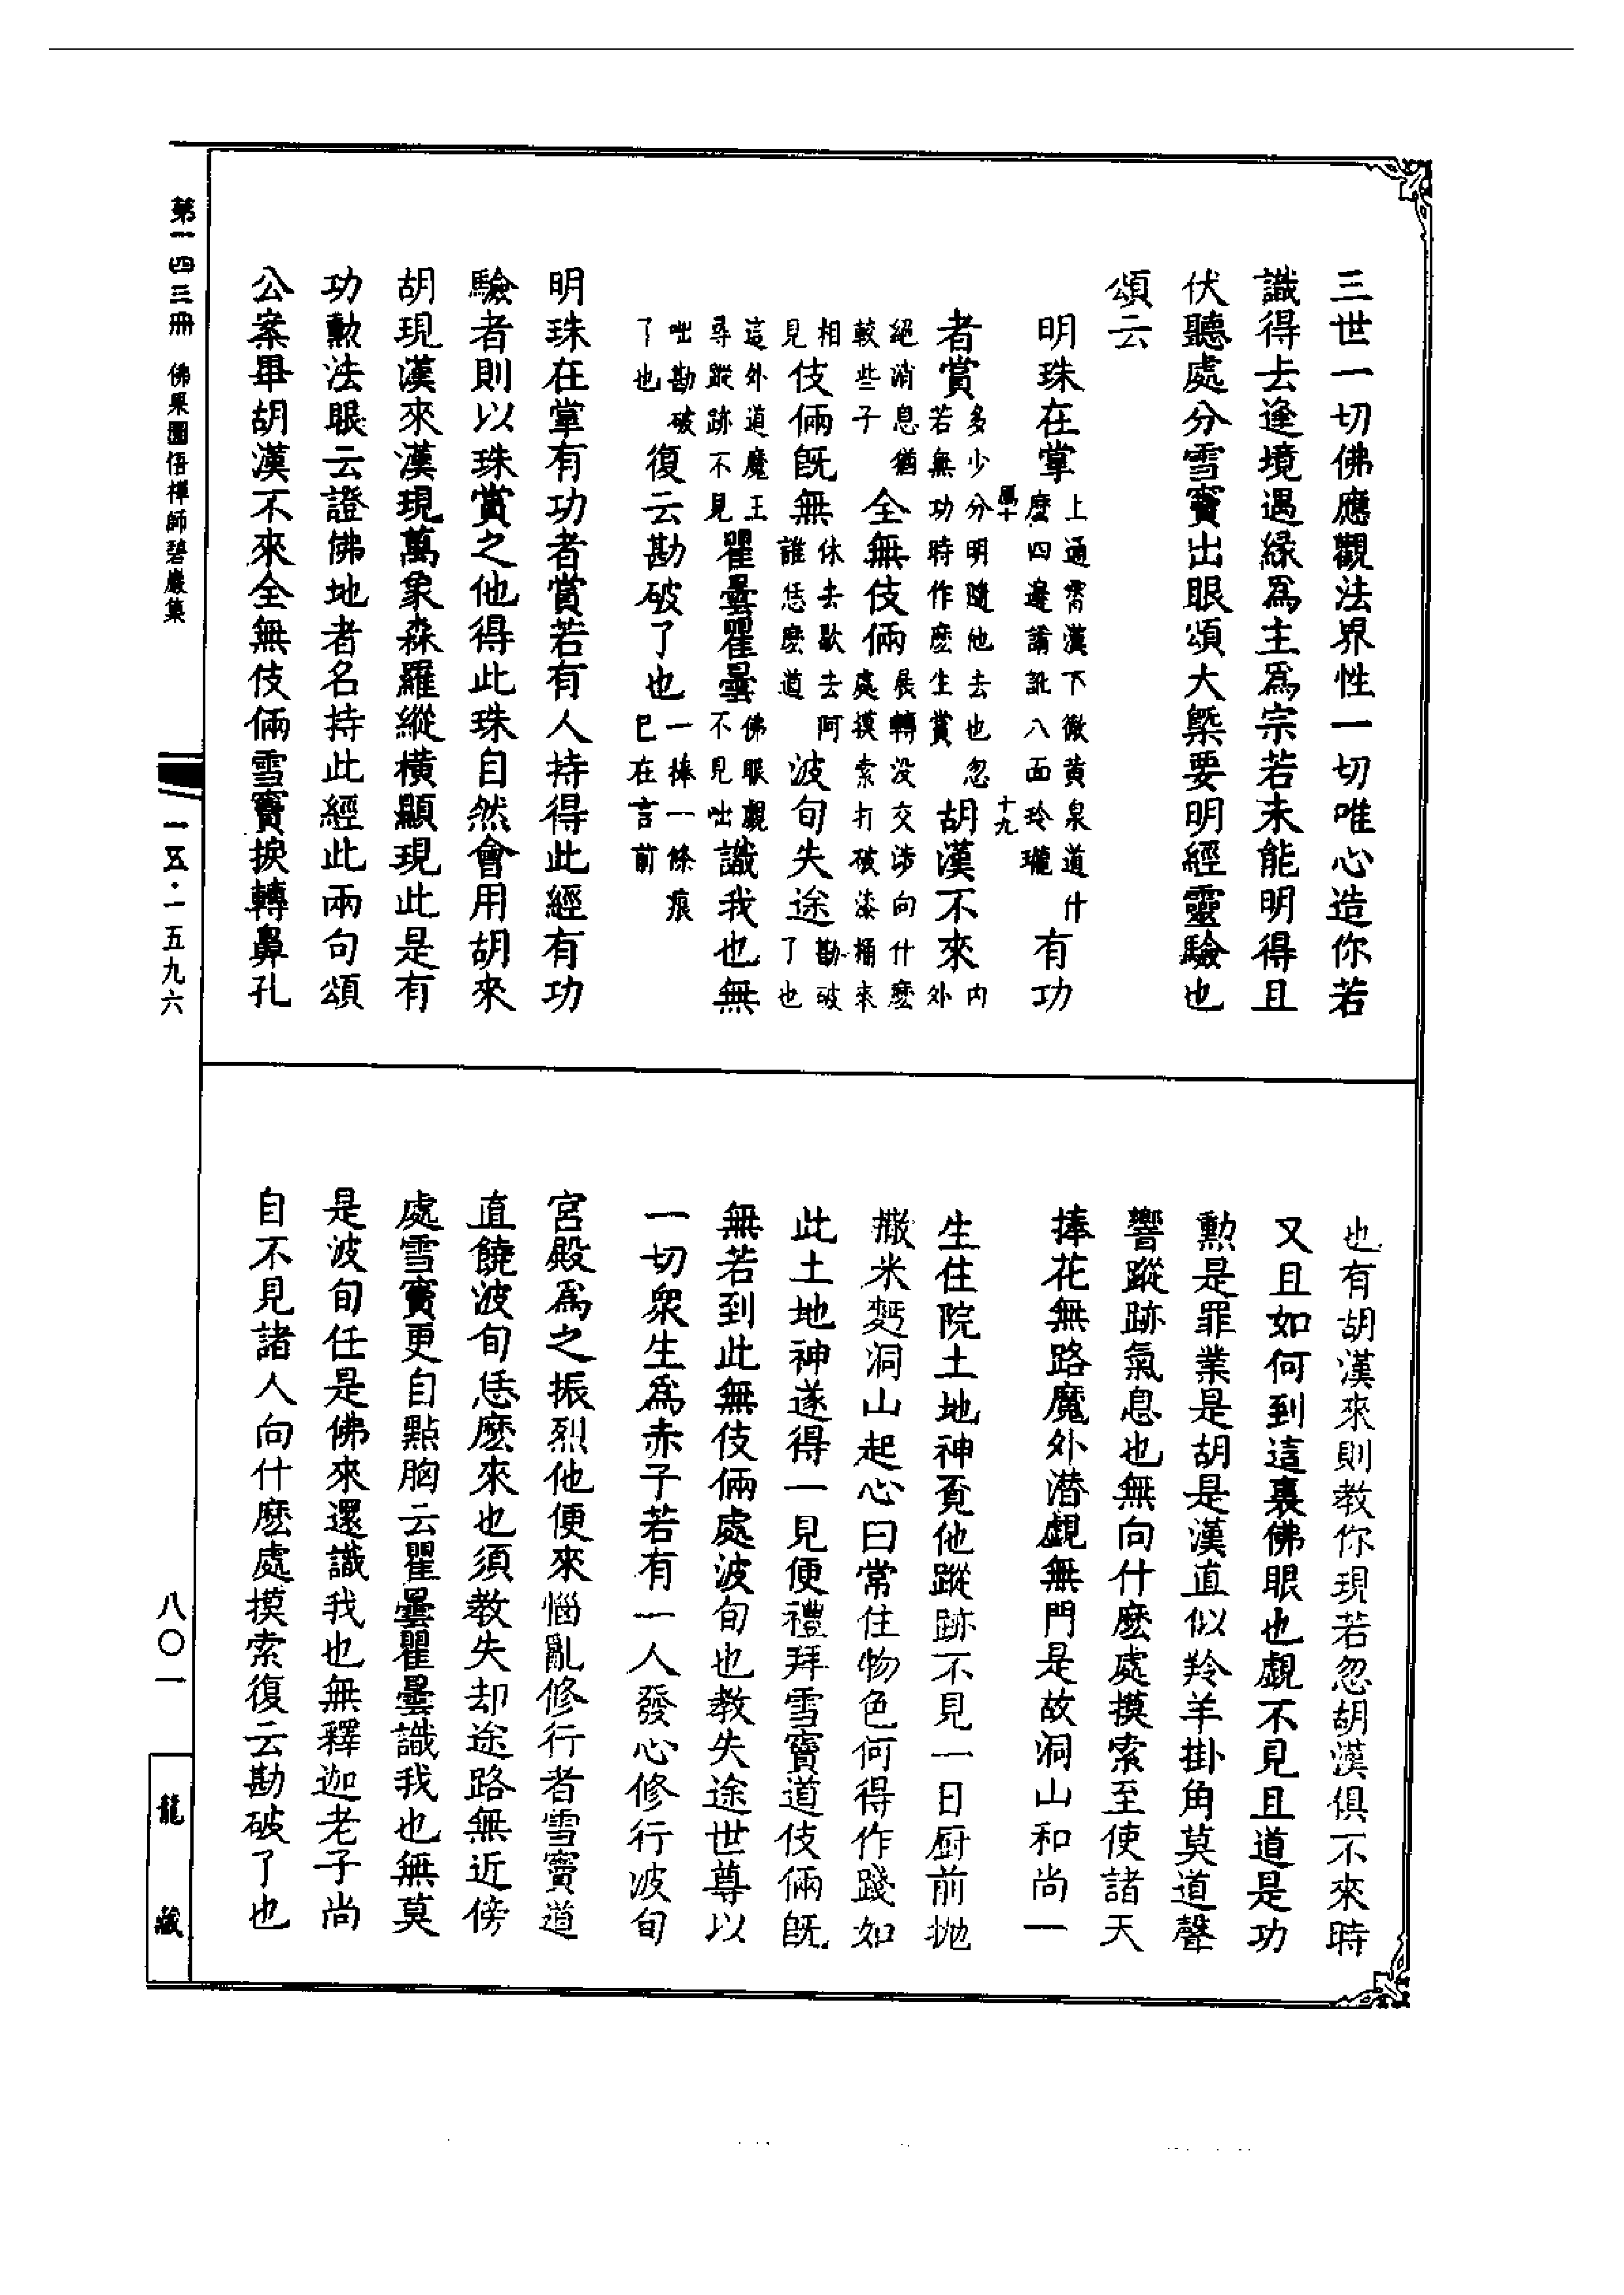 三世一切佛應觀法界性一切唯心造你若
識得去逢境遇緣爲主爲宗若未能明得且
伏聽處分雪竇出眼頌大槩要明經靈驗也
頌云
明珠在掌
上通霄漢下徹黃泉道什
麽四邊誵訛八面玲瓏
有功
十九
者賞
多少分明隨他去也忽
若無功時作麽生賞
胡漢不來
內
外
絕消息猶
較些子
全無伎倆
展轉沒交涉向什麽
處摸索打破漆桶來
相
見
伎倆旣無
休去歇去阿
誰恁麽道
波旬失途
勘破
了也
這外道魔王
尋蹤跡不見
瞿曇瞿曇
佛眼覷
不見咄
識我也無
咄勘破
了也
復云勘破了也
一捧一條痕
已在言前
明珠在掌有功者賞若有人持得此經有功
驗者則以珠賞之他得此珠自然會用胡來
胡現漢來漢現萬象森羅縱橫顯現此是有
功勲法眼云證佛地者名持此經此兩句頌
公案畢胡漢不來全無伎倆雪竇捩轉鼻孔
也有胡漢來則教你現若忽胡漢俱不來時
又且如何到這裏佛眼也覷不見且道是功
勲是罪業是胡是漢直似羚羊掛角莫道聲
響蹤跡氣息也無向什麽處摸索至使諸天
捧花無路魔外潜覷無門是故洞山和尚一
生住院土地神覓他蹤跡不見一日厨前抛
撒米麪洞山起心曰常住物色何得作踐如
此土地神遂得一見便禮拜雪竇道伎倆旣
無若到此無伎倆處波旬也教失途世尊以
一切衆生爲赤子若有一人發心修行波旬
宮殿爲之振烈他便來惱亂修行者雪竇道
直饒波旬恁麽來也須教失却途路無近傍
處雪竇更自點胸云瞿曇瞿曇識我也無莫
是波旬任是佛來還識我也無釋迦老子尚
自不見諸人向什麽處摸索復云勘破了也
第一四三冊 佛果圜悟禪師碧巖集
一五·一五九六
八〇一
龍藏